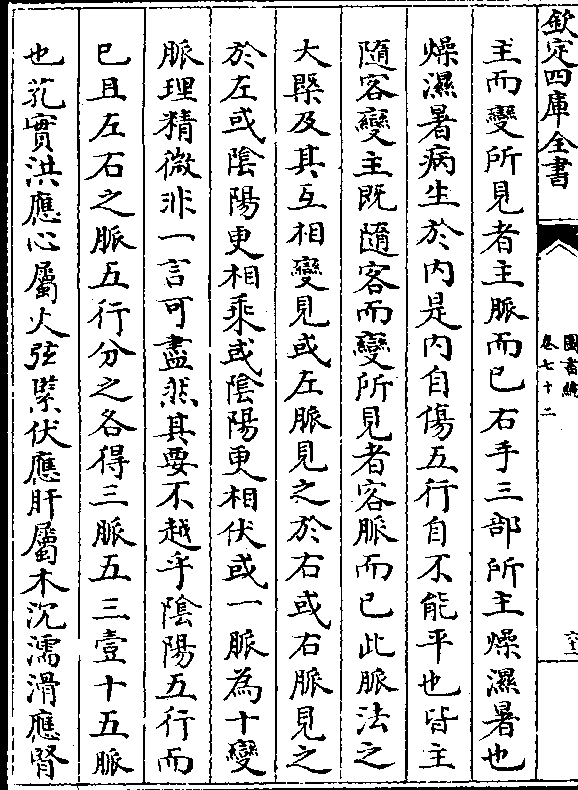 欽定四庫全書
圖書編
卷七十二
主而變所見者主脈而已右手三部所主燥濕暑也
燥濕暑病生於内是内自傷五行自不能平也皆主
隨客變主既隨客而變所見者客脈而已此脈法之
大槩及其互相變見或左脈見之於右或右脈見之
於左或陰陽更相乘或陰陽更相伏或一脈為十變
脈理精微非一言可盡然其要不越乎陰陽五行而
已且左右之脈五行分之各得三脈五三壹十五脈
也芤實洪應心屬火弦緊伏應肝屬木沉濡滑應腎